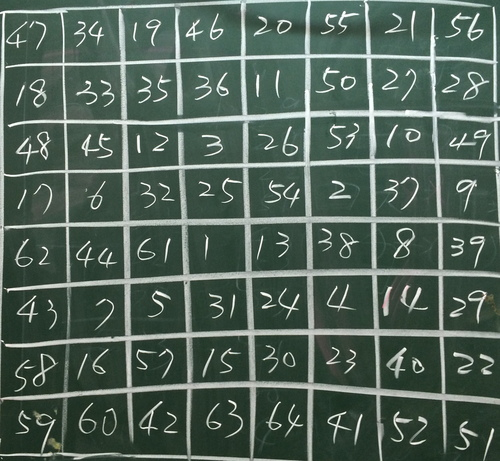 47 34 19 46 20 55 21 56
18 33 35 36 11 50 27 28
48 45 12 3 26 53 10 49
17 6 32 25 54 2 37 9
62 44 61 1 13 38 8 39
43 7 5 31 24 4 14 29
58 16 57 15 30 23 40 22
59 60 42 63 64 41 52 51